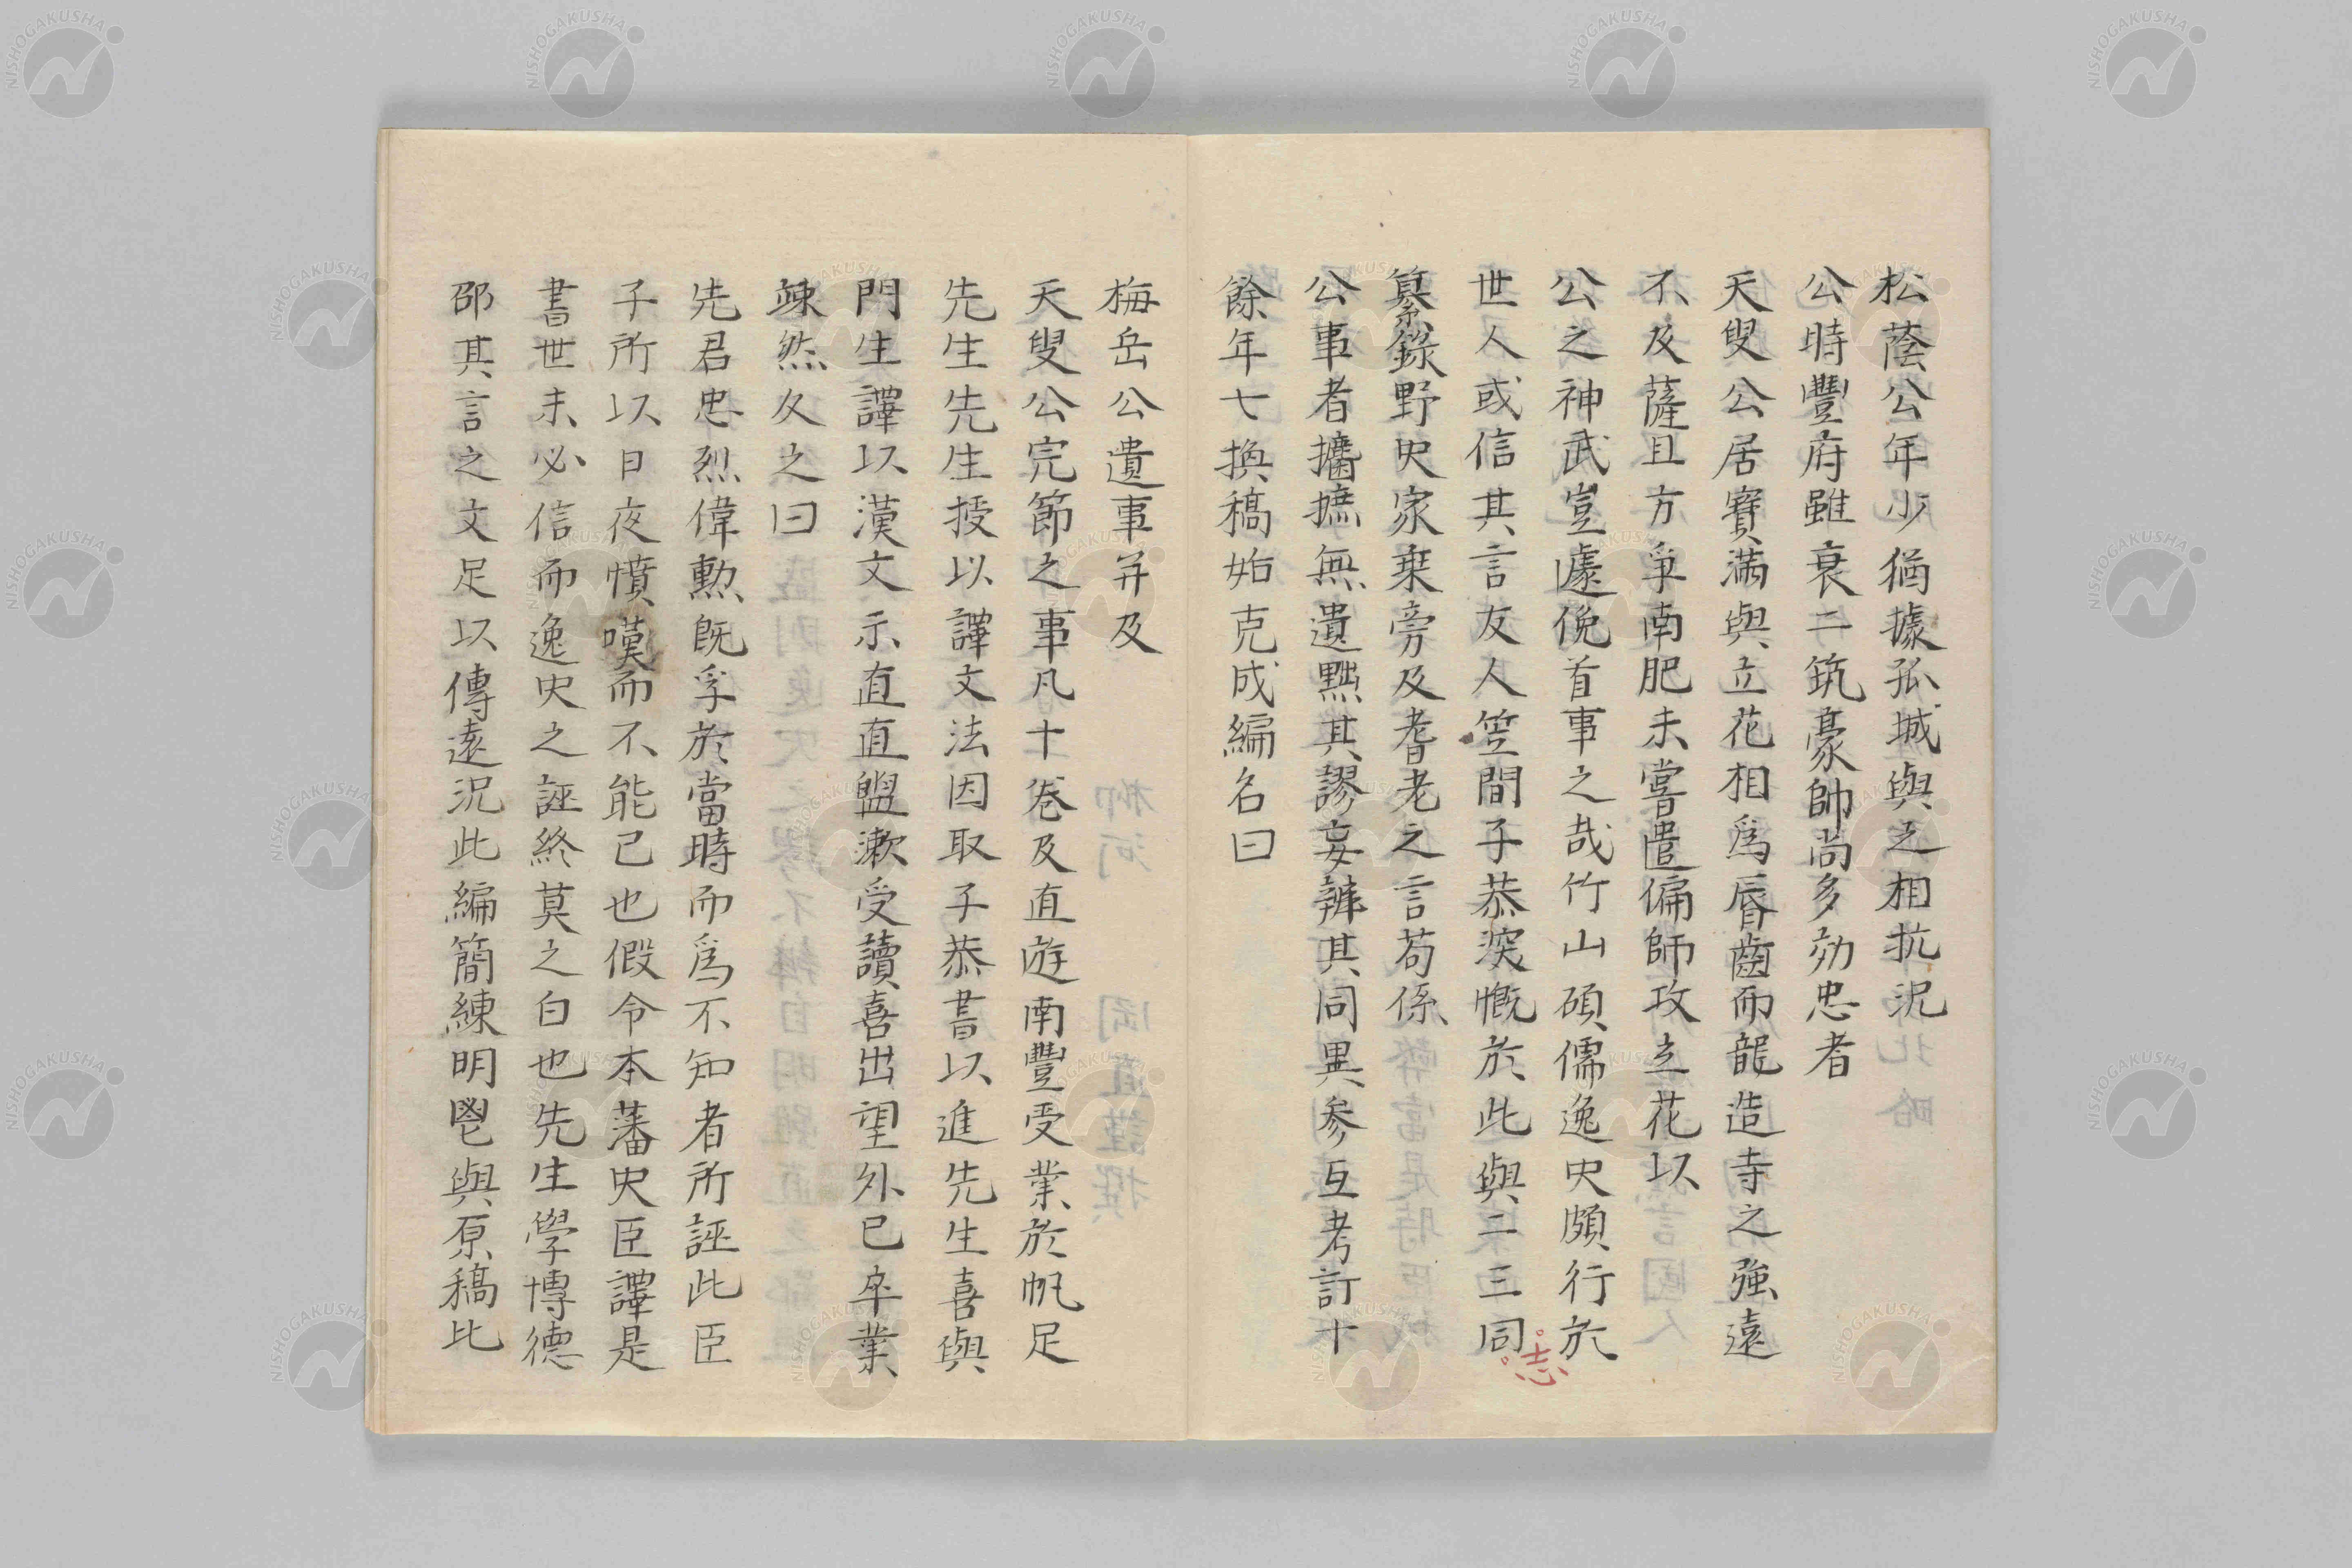 松蔭公年少猶據孤城與之相抗況
公時豐府雖衰二筑豪帥尚多効忠者
天叟公居寶滿與立花相爲唇齒而龍造寺之強遠
不及薩且方爭南肥未嘗遣偏師攻立花以
公之神武豈遽俛首事之哉竹山碩儒逸史頗行於
世人或信其言友人笠間子恭深慨於此與二三同
志
纂錄野史家乗旁及耆老之言苟係
公事者攟摭無遺黜其謬妄辨其同異參互考訂十
餘年七換稿始克成編名曰
梅岳公遺事并及
天叟公完節之事凡十卷及直遊南豐受業於帆足
先生先生授以譯文法因取子恭書以進先生喜與
門生譯以漢文示直直盥漱受讀喜出望外已卒業
竦然久之曰
先君忠烈偉勲既孚於當時而爲不知者所誣此臣
子所以日夜憤嘆而不能已也假令本藩史臣譯是
書世未必信而逸史之誣終莫之白也先生學博德
邵其言之文足以傳遠況此編簡練明鬯與原稿比
NISHOGAKUSHA